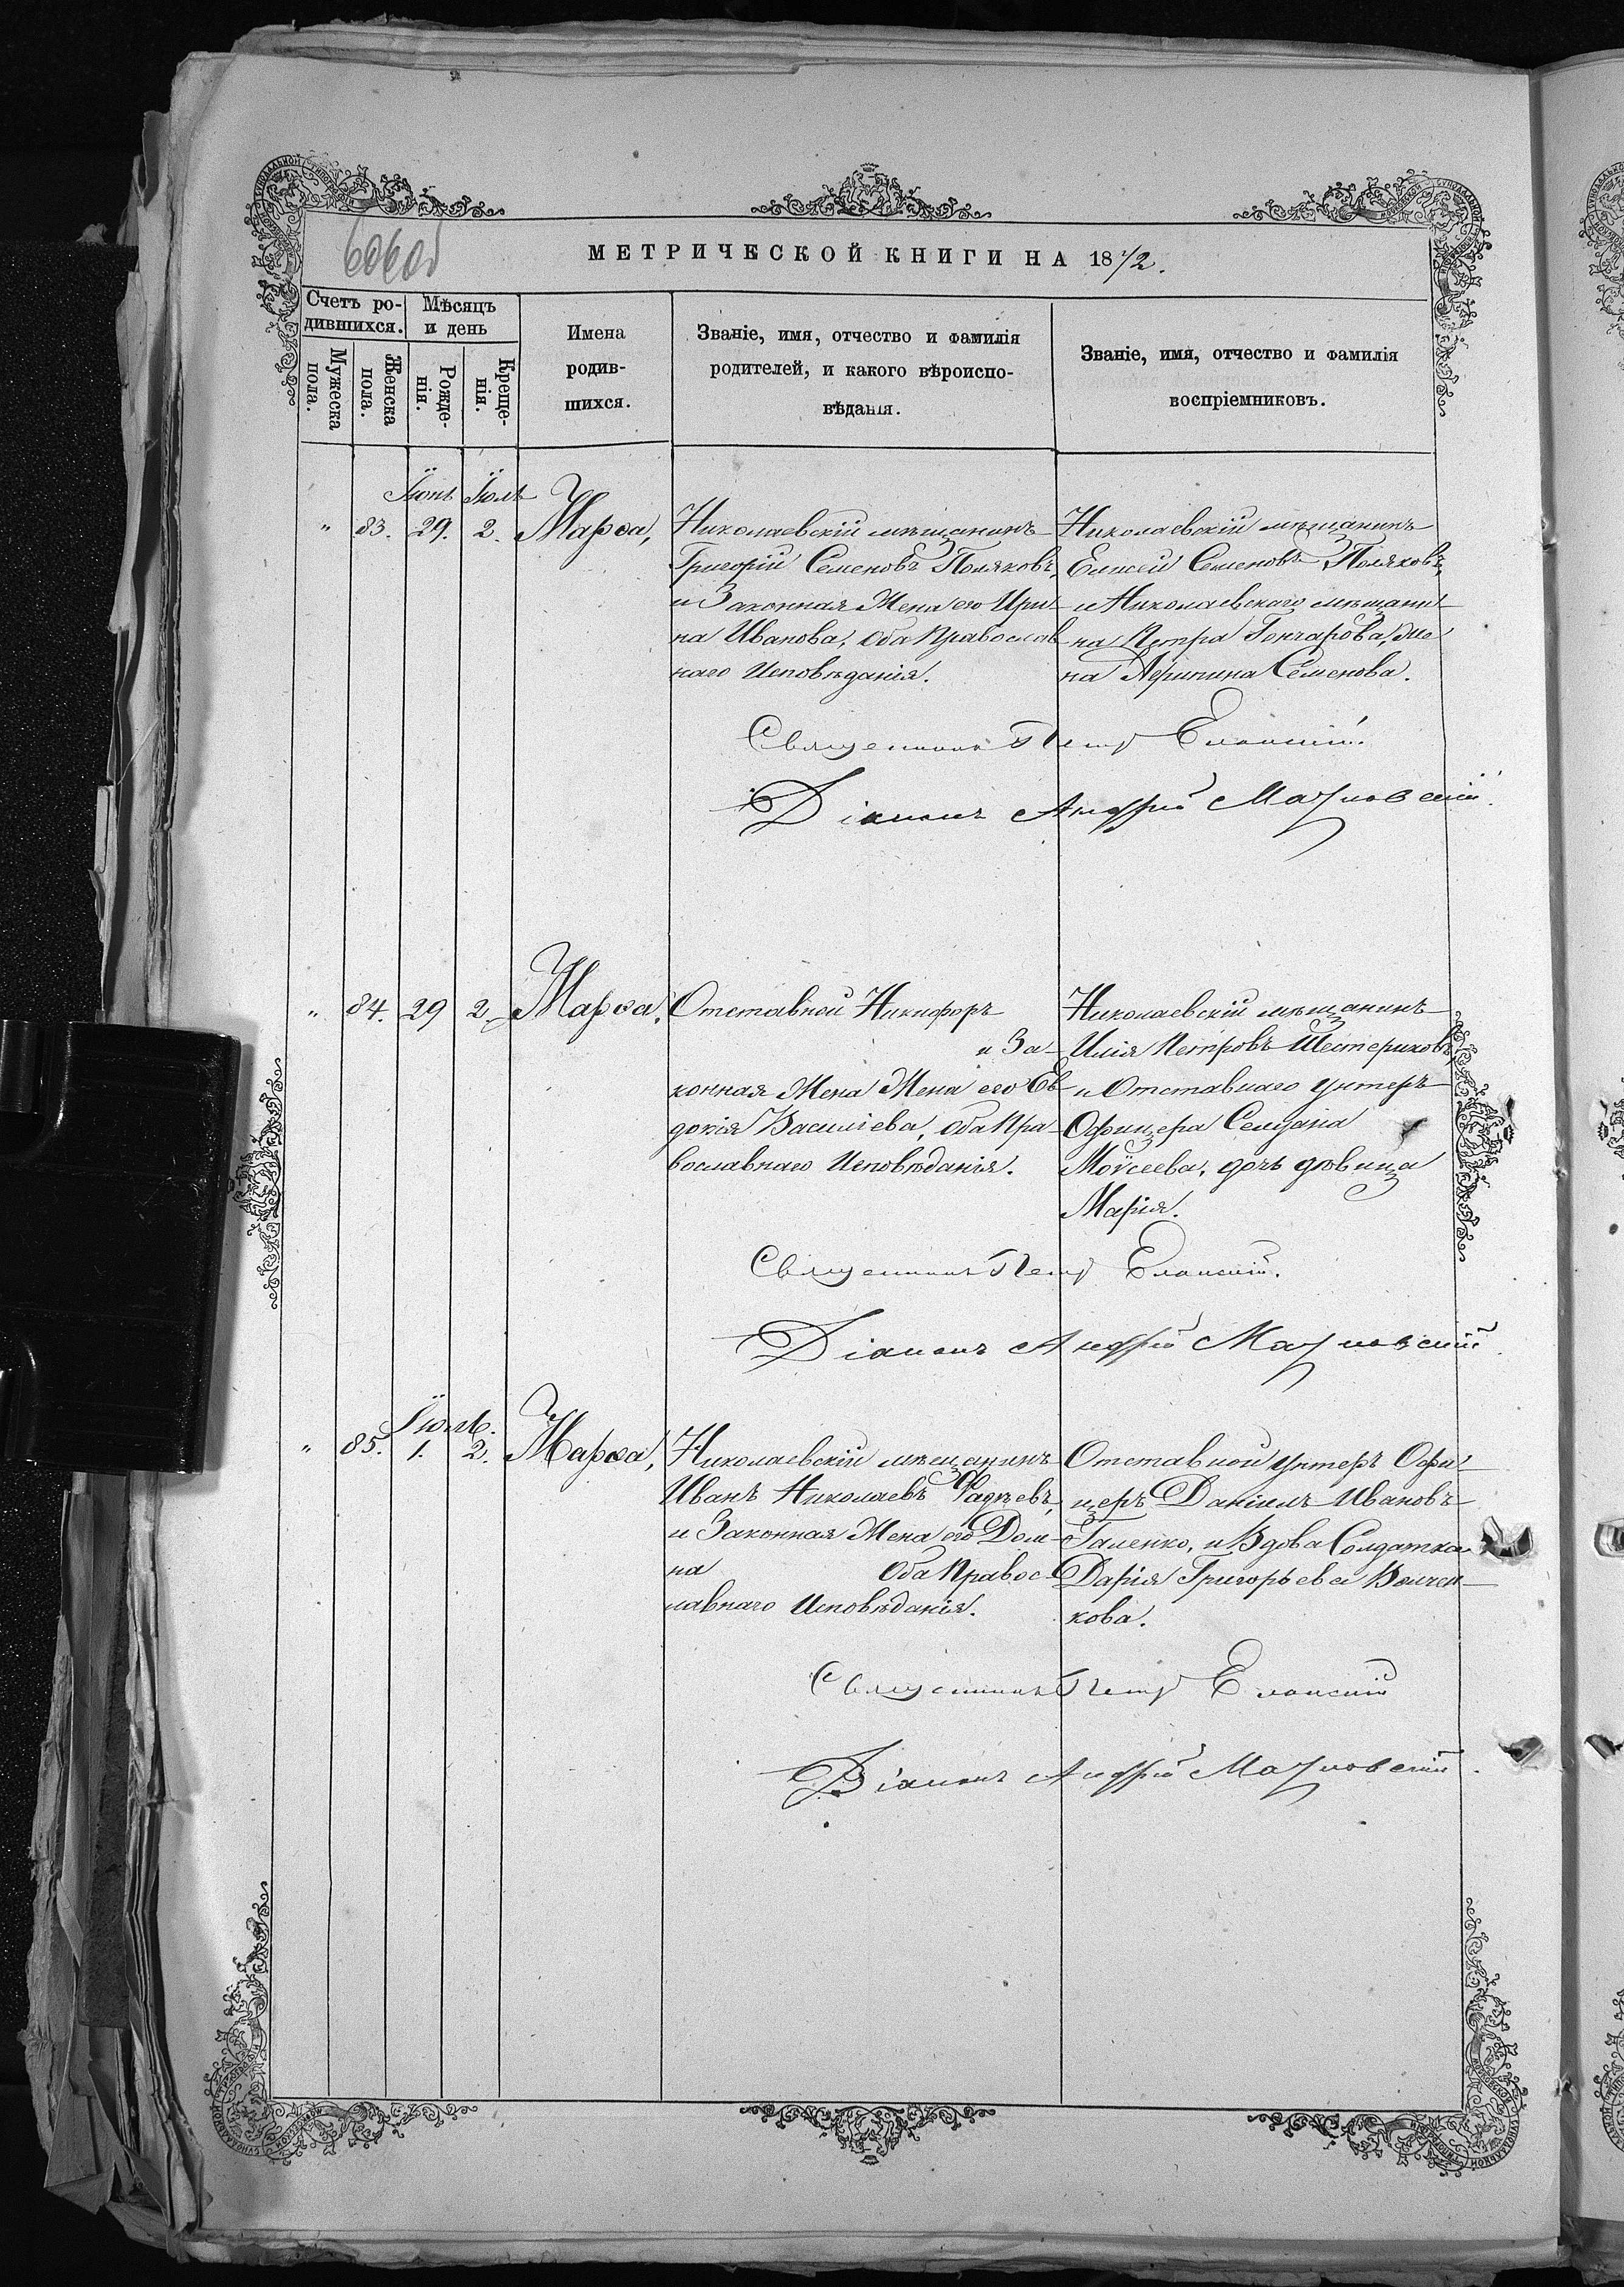 МЕТРИЧЕСКОЙ КНИГИ НА 1872.
Счетъ ро-
дившихся.
Мѣсяцъ
и день
Мужеска
пола.
Женска
пола.
Рожде-
нія.
Креще-
нія.
Имена
родив-
шихся.
Званіе, имя, отчество и фамилія
родителей, и какого вѣроиспо-
вѣданія.
Званіе, имя, отчество и фамилія
воспріемниковъ.
Іюнь Іюль
" 83. 29. 2. Марѳа,
Николаевскій мѣщанинъ
Григорій Семеновъ Поляковъ,
и Законная Жена его Ири-
на Иванова, Оба Православ-
наго Исповѣданія.
Николаевскій мѣщанинъ
Елисей Семеновъ Поляковъ,
и Николаевскаго мѣщани-
на Петра Гончарова, же-
на Агрипина Семенова.
Священникъ Петръ Еланскій.
Діаконъ Андрей
" 84. 29 2. Марѳа,
Отставной Никифоръ
и За-
конная Жена Жена его Ев-
докія Василіева, Оба Пра-
вославнаго Исповѣданія.
Николаевскій мѣщанинъ
Илія Петровъ Шестериковъ,
и Отставнаго унтеръ
Офицера
Моѵсеева, дочь дѣвица
Марія.
Священникъ Петръ Еланскій.
Діаконъ Андрей
Іюль.
" 85. 1. 2. Марѳа,
Николаевскій мѣщанинъ
Иванъ Николаевъ Фадѣевъ,
и Законная Жена его Дом-
на Оба Правос-
лавнаго Исповѣданія.
Отставной унтеръ Офи-
церъ Даніилъ Ивановъ
Галенко, и Вдова Солдатка
Дарія Григорьева Волчен-
кова.
Священникъ Петръ Еланскій
Діаконъ Андрей